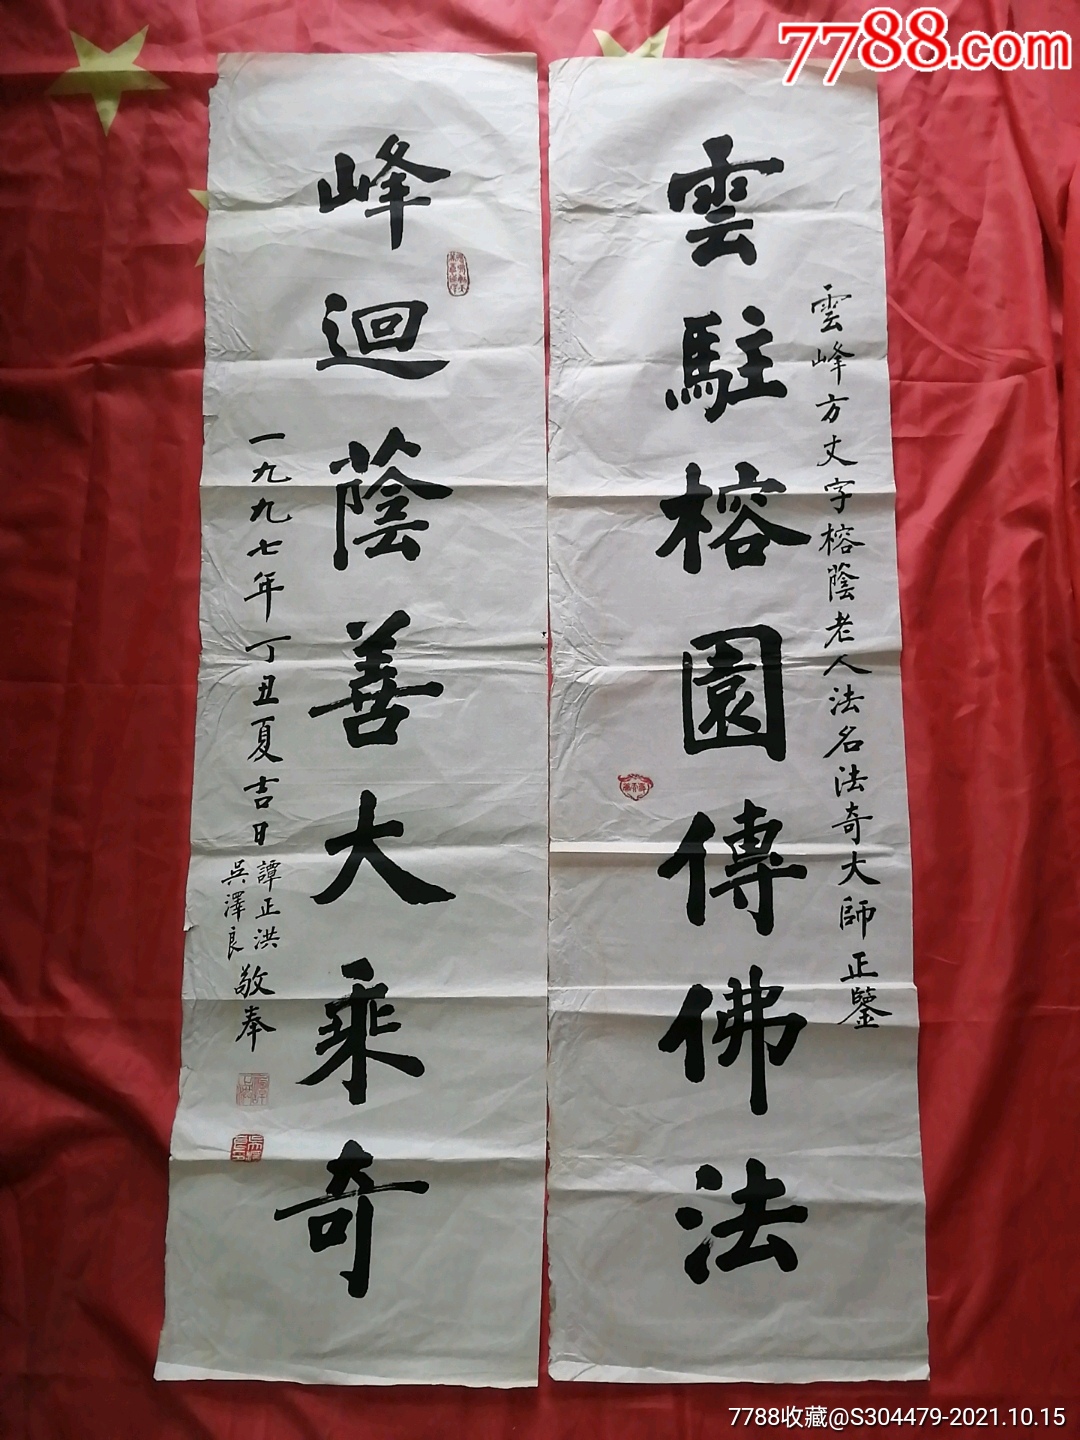 7788.com
雲峰方丈字榕蔭老人法名法奇大師正鑒
雲駐榕園傳佛法
峰迴蔭善大乘奇
一九九七年丁丑夏吉日
譚正洪
吳澤良
敬奉
7788收藏@S304479-2021.10.15